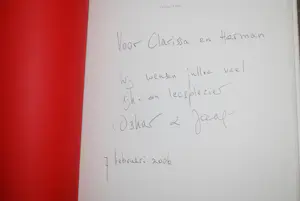 Voor Clarissa en Harman
Wij wensen jullie veel
kijk- en leesplezier
Oskar & Jaap
7 februari 2006